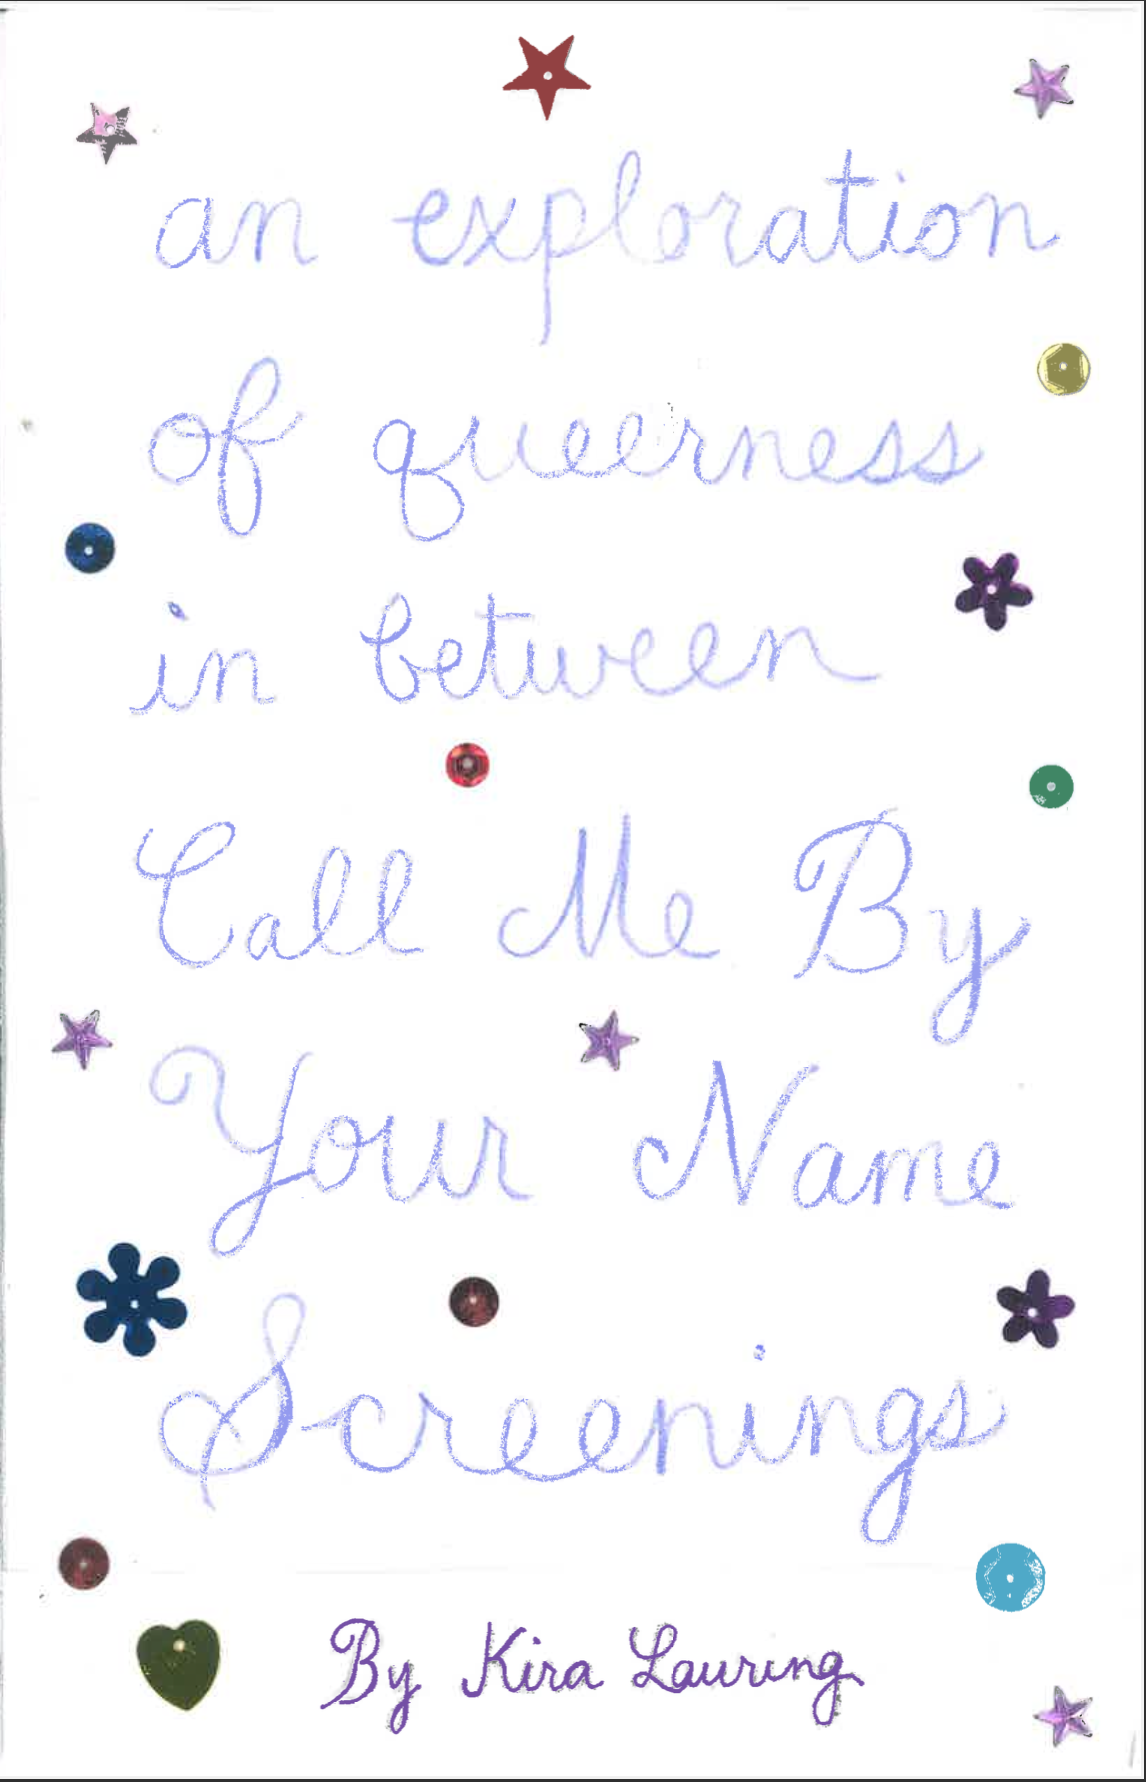 an exploration
of queerness
in between
Call Me By
Your Name
Screenings
By Kira Lauring